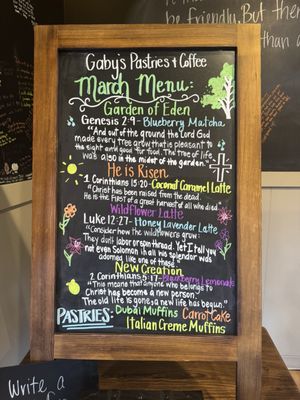 be friendly. But then
Gaby's Pastries & Coffee
March Menu:
Garden of Eden
Genesis 2:9 - Blueberry Matcha
"And out of the ground the Lord God
made every tree grow that is pleasant
the sight and good for food. The tree of life
was also in the midst of the garden."
He is Risen
1 Corinthians 15:20 - Coconut Caramel Latte
"Christ has been raised from the dead.
He is the FIRST of a great harvest of all who died."
Wildflower Latte
Luke 12:27 - Honey Lavender Latte
"Consider how the wildflowers grow:
They don't labor or spin thread. Yet I tell you
not even Solomon in all his splendor was
adorned like one of these."
New Creation
2 Corinthians 5:17 - Blackberry Lemonade
"This means that anyone who belongs to
Christ has become a new person.
The old life is gone; a new life has begun."
PASTRIES: Dubai Muffins Carrot Cake
Italian Creme Muffins
Write a